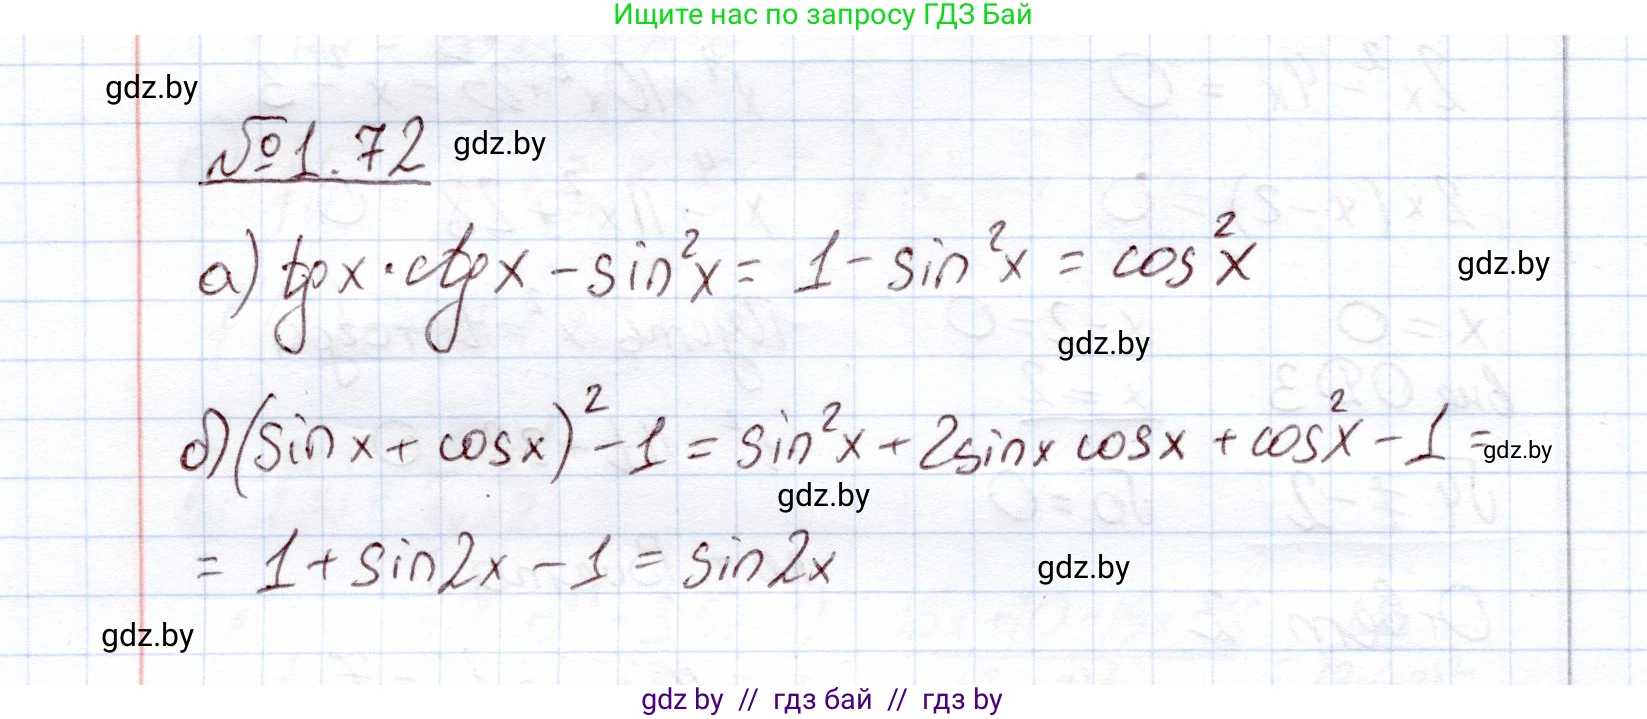 Ищите нас по запросу ГДЗ Бай
gdz.by
№1.72 gdz.by
а) tgx·ctgx − sin²x = 1 − sin²x = cos²x
gdz.by
gdz.by
б) (sinx + cosx)² − 1 = sin²x + 2sinx cosx + cos²x − 1 =
gdz.by
gdz.by
= 1 + sin2x − 1 = sin2x
gdz.by
gdz.by
gdz.by // гдз бай // гдз by